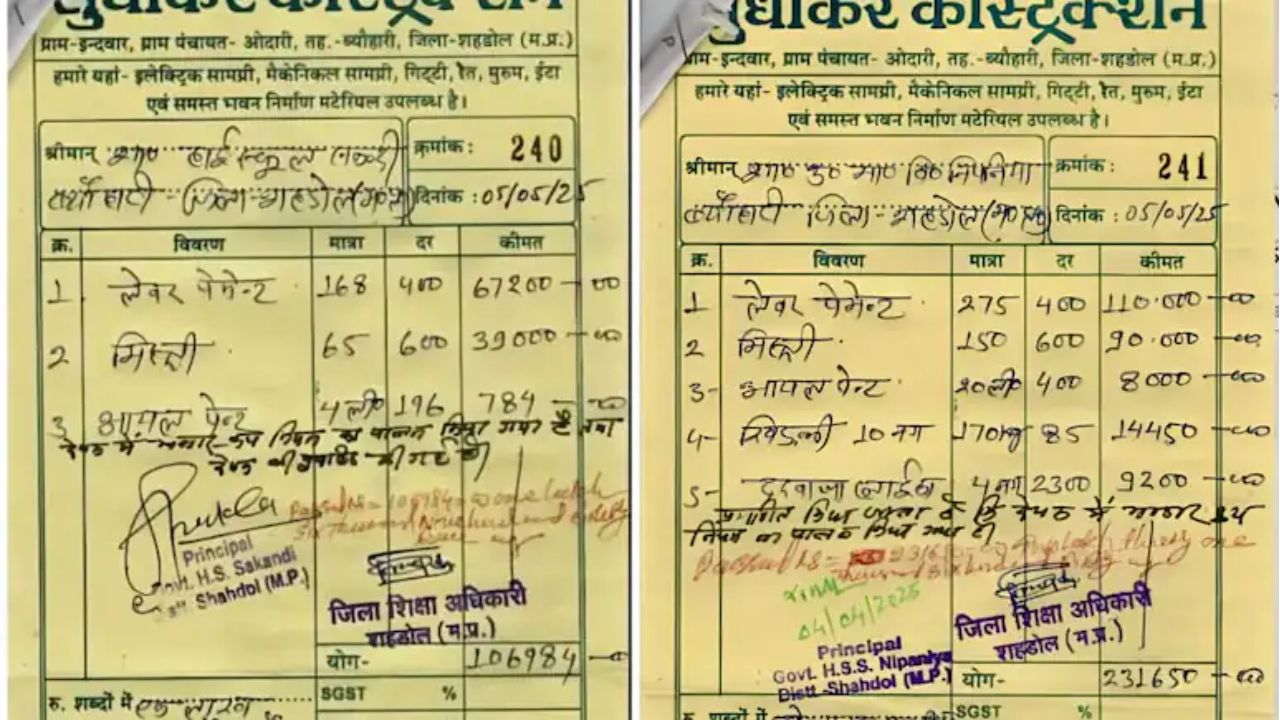 सुधाकर कंस्ट्रक्शन
ग्राम-इन्दवार, ग्राम पंचायत- ओदारी, तह.-ब्यौहारी, जिला-शहडोल (म.प्र.)
हमारे यहां- इलेक्ट्रिक सामग्री, मैकेनिकल सामग्री, गिट्टी, रेत, मुरुम, ईटा
एवं समस्त भवन निर्माण मटेरियल उपलब्ध है।
श्रीमान् शास० हाई स्कूल सकन्दी
क्रमांक : 240
जिला-शहडोल (म०प्र०)
दिनांक : 05/05/25
क्र. विवरण मात्रा दर कीमत
1 लेबर पेमेन्ट 168 400 67200-00
2 मिस्त्री 65 600 39000-00
3 आयल पेन्ट 4 ली० 196 784-00
देयक में भण्डार क्रय नियम का पालन किया गया है तथा
देयक की
Principal
Govt. H.S. Sakandi
Distt. Shahdol (M.P.)
Passed Rs = 106984 = 00 one lakh
Six thousand Nine hundred and eighty
जिला शिक्षा अधिकारी
शहडोल (म.प्र.)
योग- 106984-00
रु. शब्दों में एक लाख
SGST %
सुधाकर कंस्ट्रक्शन
ग्राम-इन्दवार, ग्राम पंचायत- ओदारी, तह.-ब्यौहारी, जिला-शहडोल (म.प्र.)
हमारे यहां- इलेक्ट्रिक सामग्री, मैकेनिकल सामग्री, गिट्टी, रेत, मुरुम, ईटा
एवं समस्त भवन निर्माण मटेरियल उपलब्ध है।
श्रीमान् शास० उ० मा० वि० निपनिया
क्रमांक : 241
जिला-शहडोल (म०प्र०)
दिनांक : 05/05/25
क्र. विवरण मात्रा दर कीमत
1 लेबर पेमेन्ट 275 400 110.000-00
2 मिस्त्री 150 600 90.000-00
3- आयल पेन्ट 20 ली० 400 8000-00
4- 10 नग 170 kg 85 14450-00
5- दरवाजा 4 नग 2300 9200-00
प्रमाणित किया जाता है कि देयक में भण्डार क्रय
नियम का पालन किया गया है।
Passed Rs = 231650
04/04/2025
Principal
Govt. H.S.S. Nipaniya
Distt.-Shahdol (M.P.)
जिला शिक्षा अधिकारी
शहडोल (म.प्र.)
योग- 231650-00
रु. शब्दों में
SGST %